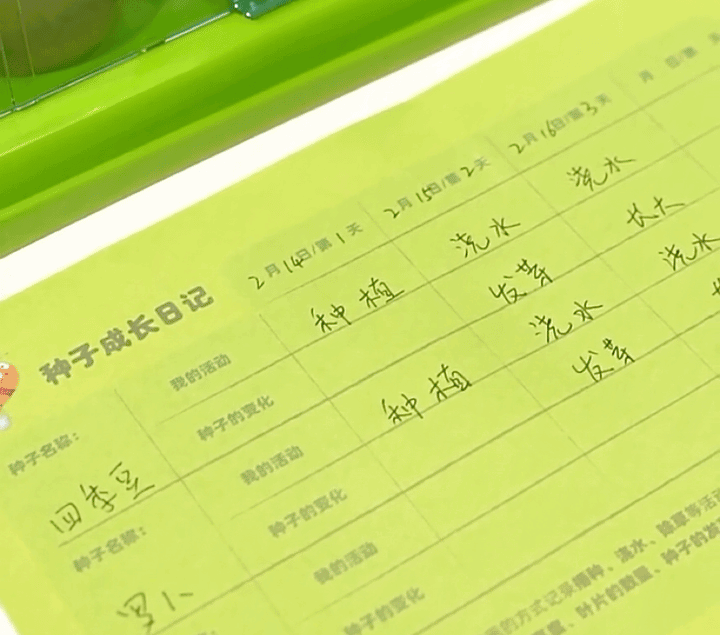 种子成长日记
2月14日/第1天 2月15日/第2天 2月16日/第3天 月 日/第 天
种子名称：
四季豆
我的活动 种植 浇水 浇水
种子的变化 发芽 长大
种子名称：
萝卜
我的活动 种植 浇水 浇水
种子的变化 发芽
我的活动
种子的变化
的方式记录播种、浇水、除草等活
叶片的数量、种子的发